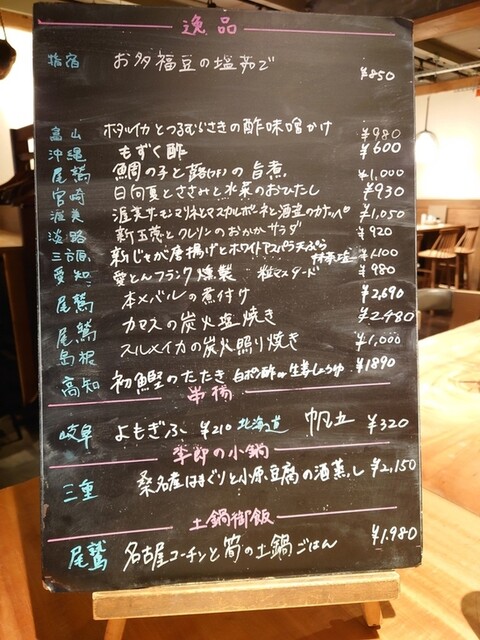 逸品
指宿 お多福豆の塩茹で ¥850
富山 ホタルイカとつるむらさきの酢味噌かけ ¥980
沖縄 もずく酢 ¥600
尾鷲 鯛の子と蕗(フキ)の旨煮 ¥1,000
宮崎 日向夏とささみと水菜のおひたし ¥930
渥美 渥美サーモンマリネとマスカルポーネと酒盗のカナッペ ¥1,050
淡路 新玉葱とクレソンのおかかサラダ ¥920
三方原 新じゃが唐揚げとホワイトアスパラ天ぷら 抹茶塩 ¥1,100
愛知 愛とんフランク燻製 粒マスタード ¥980
尾鷲 本メバルの煮付け ¥2,690
尾鷲 カマスの炭火塩焼き ¥2,480
島根 スルメイカの炭火照り焼き ¥1,000
高知 初鰹のたたき 白ポン酢or生姜しょうゆ ¥1890
串揚
岐阜 よもぎふ ¥210 北海道 帆立 ¥320
季節の小鍋
三重 桑名産はまぐりと小原豆腐の酒蒸し ¥2,150
土鍋御飯
尾鷲 名古屋コーチンと筍の土鍋ごはん ¥1,980